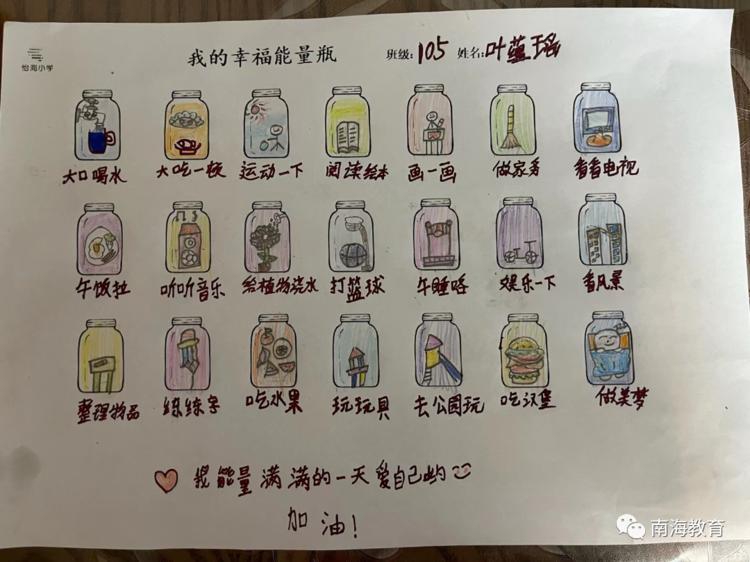 怡海小学
我的幸福能量瓶 班级:105 姓名:叶蕴瑶
大口喝水 大吃一顿 运动一下 阅读绘本 画一画 做家务 看看电视
午饭啦 听听音乐 给植物浇水 打篮球 午睡呼 娱乐一下 看风景
整理物品 练练字 吃水果 玩玩具 去公园玩 吃汉堡 做美梦
我能量满满的一天爱自己哟
加油!
南海教育